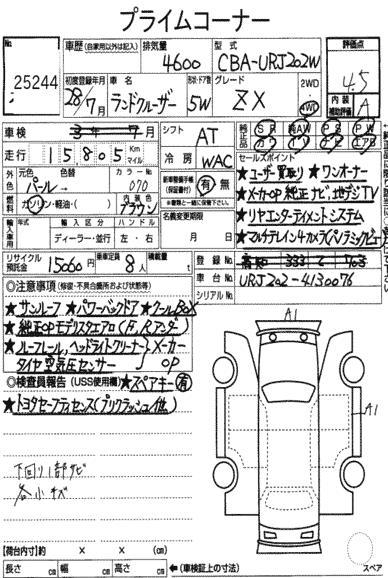 プライムコーナー
No
25244
車歴(自家用以外は記入)
排気量
4600
型式
CBA-URJ202W
評価点
4.5
初度登録年月
28/7月
車名
ランドクルーザー
形状・ドア数
5W
グレード
ZX
2WD
4WD
内装
補助評価
A
車検
3年7月
シフト
AT
純正品
SR
純AW
PS
PW
カワ
TV
ナビ
エアB
走行
15805
Km
マイル
冷房
WAC
セールスポイント
★ユーザー買取り ★ワンオーナー
★メーカーOP 純正ナビ、地デジTV
★リヤエンターテイメントシステム
★マルチテレイン4カメラ(パノラミックビュー)
外色
元色
パール
色替
カラーNo
070
燃料
ガソリン・軽油・( )
内装色
ブラウン
新車整備手帳
(保証書付)
有
無
※書類と一緒に保管下さい。
輸入車用
年式
輸入区分
ハンドル
ディーラー・並行
左・右
名義変更期限
月 日
リサイクル
預託金
15060円
乗車定員
8人
積載量
t
登録No
車台No
URJ202-4130076
シリアルNo
◎注意事項
★サンルーフ ★パワーバックドア ★クールBOX
★純正OPモデリスタエアロ(F,Rアンダー)
★ルーフレール,ヘッドライトクリーナー
タイヤ空気圧センサー
★メーカーOP
◎検査員報告(USS使用欄)
★スペアキー有
★トヨタセーフティセンス(プリクラッシュ他)
下回り1部サビ
各小キズ
A1
A1
【荷台内寸】約 × × (cm)
長さ cm
幅 cm
高さ cm
←(車検証上の寸法)
スペア